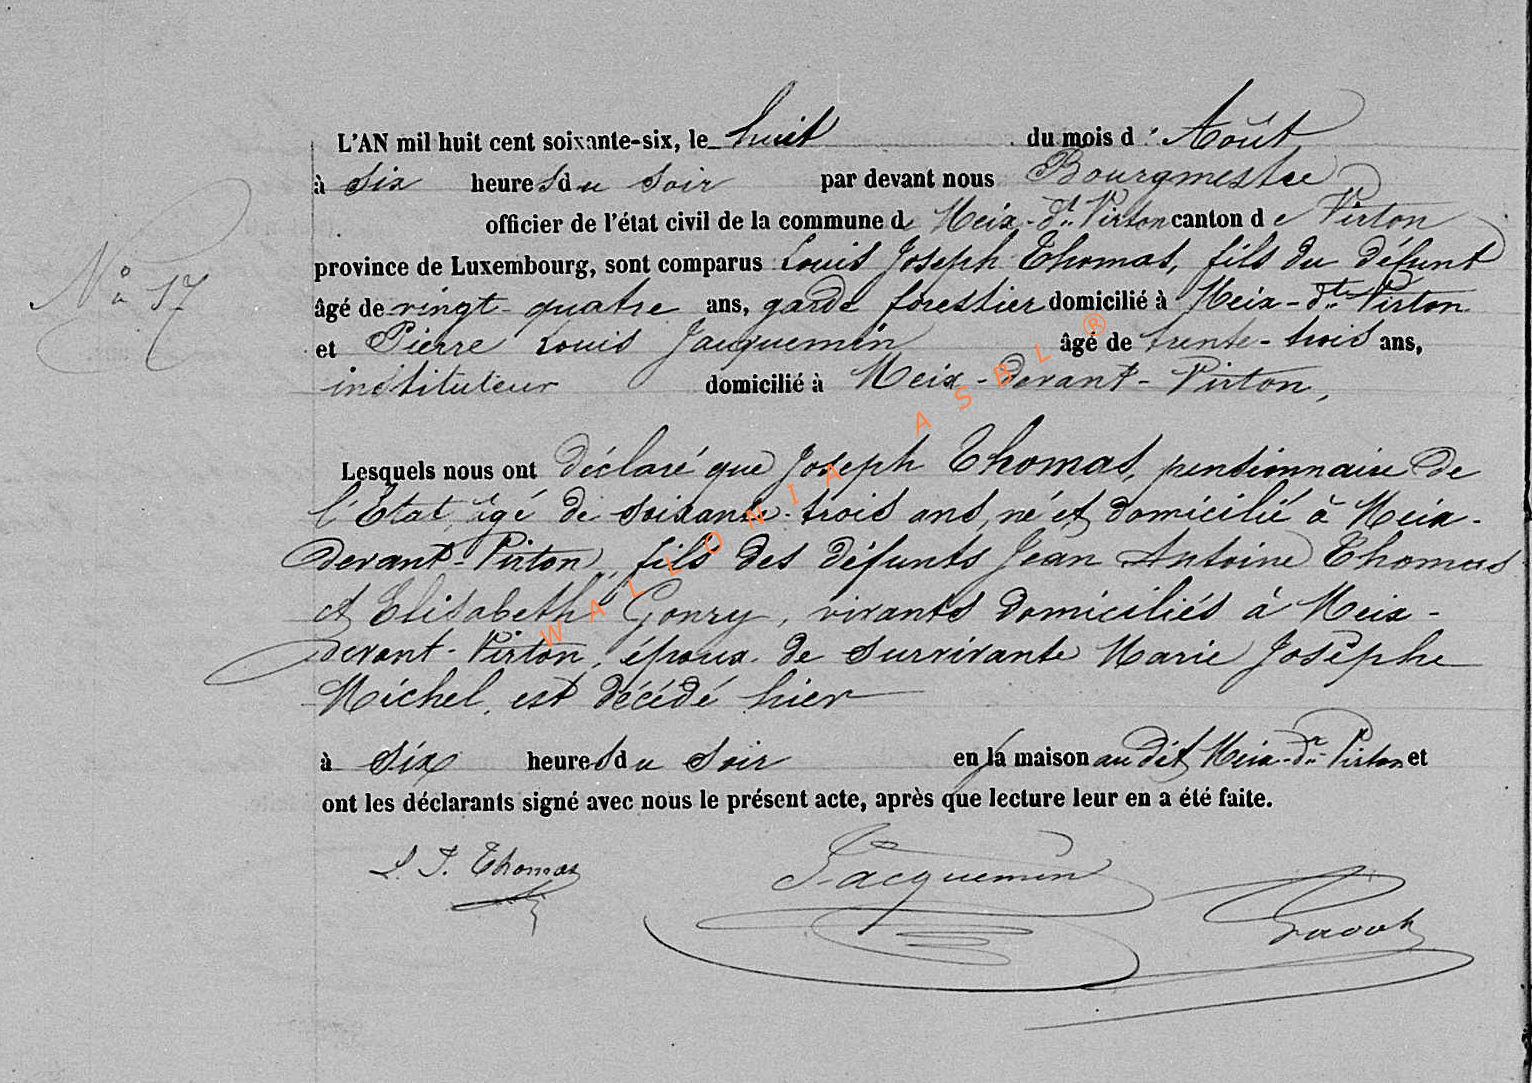 L'AN mil huit cent soixante-six, le huit du mois d' Août
à six heures du soir par devant nous Bourgmestre
officier de l'état civil de la commune de Meix-dt Virton canton de Virton
province de Luxembourg, sont comparus Louis Joseph Thomas, fils du défunt
Nº 17
âgé de vingt-quatre ans, garde forestier domicilié à Meix-dt Virton
et Pierre Louis Jacquemin âgé de trente-trois ans,
instituteur domicilié à Meix-devant-Virton,
Lesquels nous ont déclaré que Joseph Thomas, pensionnaire de
l'Etat, âgé de soixante-trois ans, né et domicilié à Meix-
devant-Virton, fils des défunts Jean Antoine Thomas
et Elisabeth Gonry, vivants domiciliés à Meix-
devant-Virton, époux de survivante Marie Josèphe
Michel, est décédé hier
à six heures du soir en la maison au dit Meix-dt Virton et
ont les déclarants signé avec nous le présent acte, après que lecture leur en a été faite.
L. J. Thomas
Jacquemin
WALLONIA ASBL ®